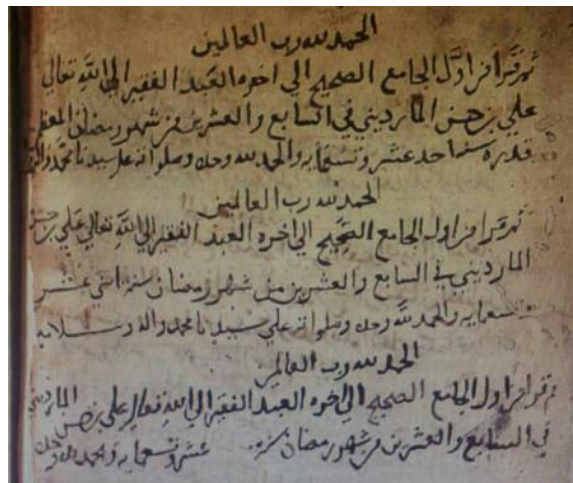 الحمد لله رب العالمين
ثم قرا من اول الجامع الصحيح الى اخره العبد الفقير الى الله تعالى
علي بن حسن المارديني في السابع والعشرين من شهر رمضان المعظم
قدره سنة احد عشر وتسعمايه والحمد لله وحده وصلواته على سيدنا محمد واله
الحمد لله رب العالمين
ثم قرا من اول الجامع الصحيح الى اخره العبد الفقير الى الله تعالى علي بن حسن
المارديني في السابع والعشرين من شهر رمضان سنة اثني عشر
وتسعمايه والحمد لله وحده وصلواته على سيدنا محمد واله وسلامه
الحمد لله رب العالمين
ثم قرا من اول الجامع الصحيح الى اخره العبد الفقير الى الله تعالى علي بن حسن المارديني
في السابع والعشرين من شهر رمضان سنة عشر وتسعمايه والحمد لله وحده